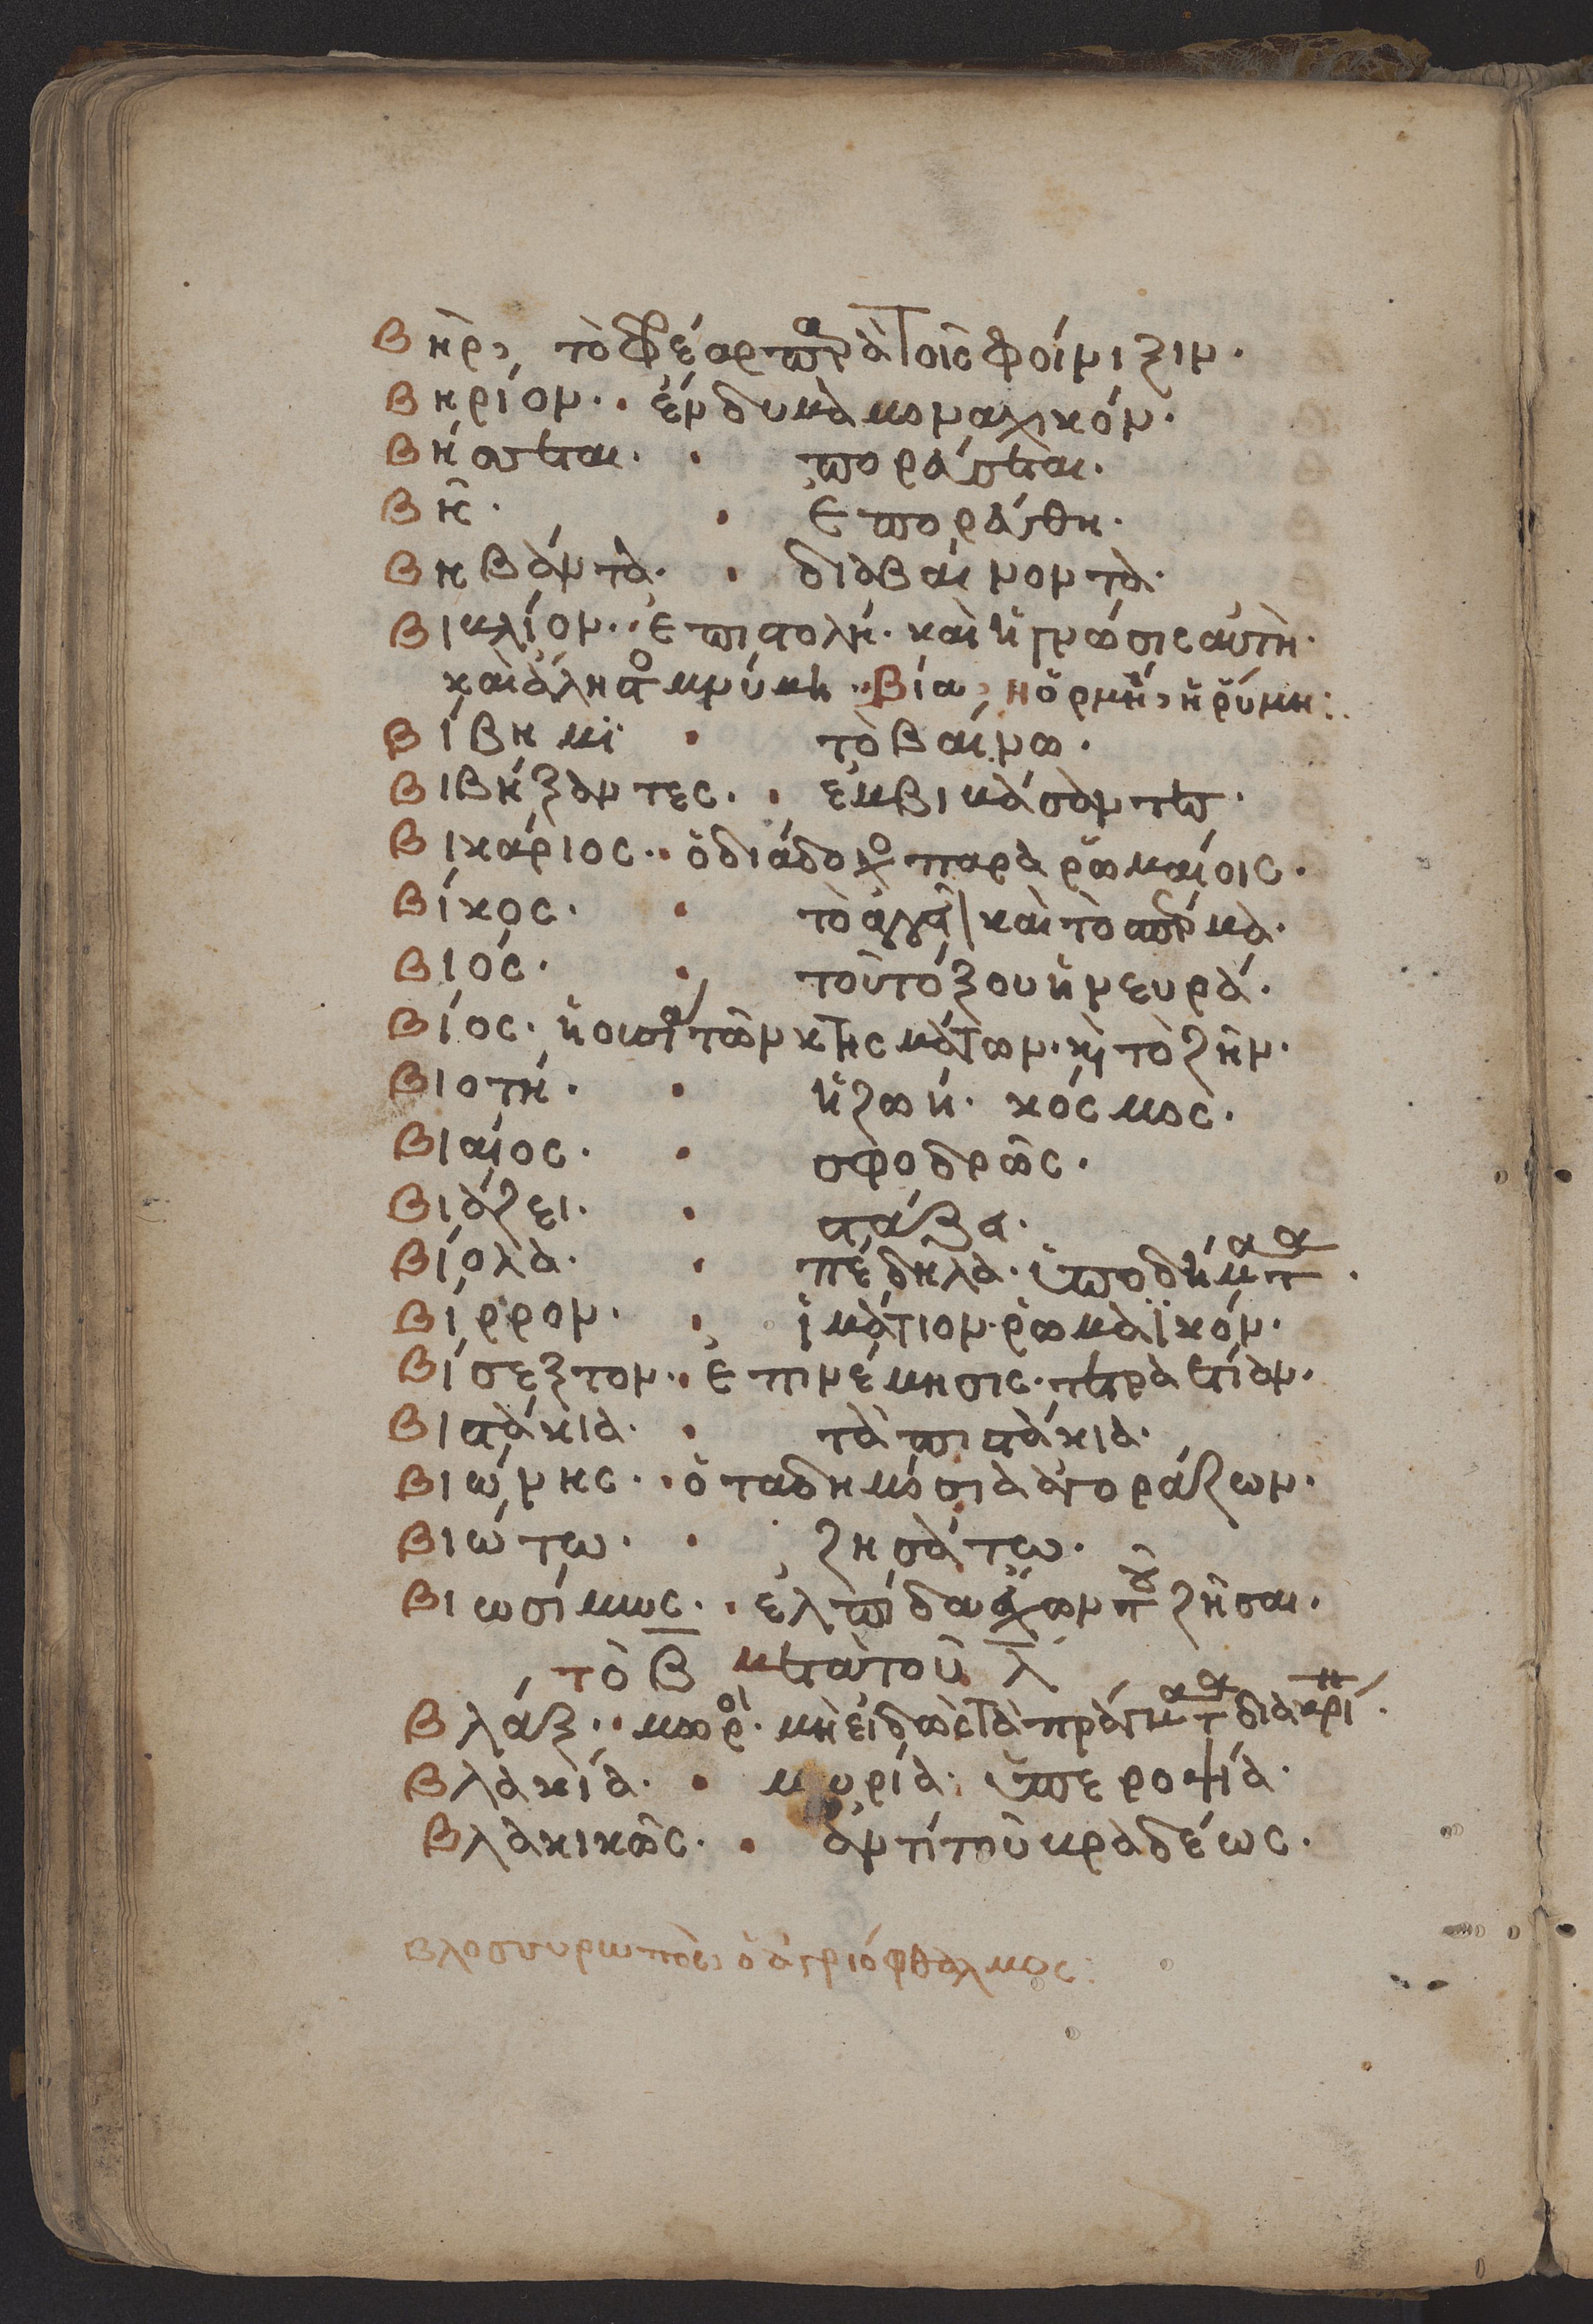 Βὴρ, τὸ φρέαρ παρὰ τοῖς φοίνιξιν.
Βηρίον. ἔνδυμα μοναχικόν.
Βήσεται. πορεύσεται.
Βῆ. ἐπορεύθη.
Βηβάντα. διαβαίνοντα.
Βικλίον. ἐπιστολή. καὶ ἡ γνῶσις αὐτή.
καὶ ἄληστος μνήμη. Βία, ἡ ὁρμή, ἡ ῥύμη:
Βίβημι τὸ βαίνω.
Βιβήξαντες. ἐμβιμάσαντες.
Βικάριος. ὁ διάδοχος παρὰ ῥωμαίοις.
Βίκος. τὸ ἀγγεῖ καὶ τὸ σπέρμα.
Βιός. τοῦ τόξου ἡ νευρά.
Βίος. ἡ οὐσία τῶν κτησμάτων. καὶ τὸ ζῆν.
Βιοτή. ἡ ζωή. κόσμος.
Βιαίος. σφοδρῶς.
Βιάζει. στάξει.
Βίολα. πέδηλα. ὑποδήματα.
Βίρρον. ἱμάτιον ῥωμαϊκόν.
Βίσεξτον. ἐπινέμησις. τετραετίαν.
Βιστάκια. τὰ πιστάκια.
Βιώνης. ὁ τα δημόσια ἀγοράζων.
Βιώτω. ζησάτω.
Βιωσίμως. ἐλπίδα ἔχων τοῦ ζῆσαι.
τὸ β μετὰ τοῦ λ
Βλάξ. μωρός. μὴ εἰδὼς τὰ πράγματα διακρί
Βλακία. μωρία. ὑπεροψία.
Βλακικῶς. ἀντὶ τοῦ κραδέως.
βλοσυρωπὸς, ὁ ἀγριόφθαλμος: